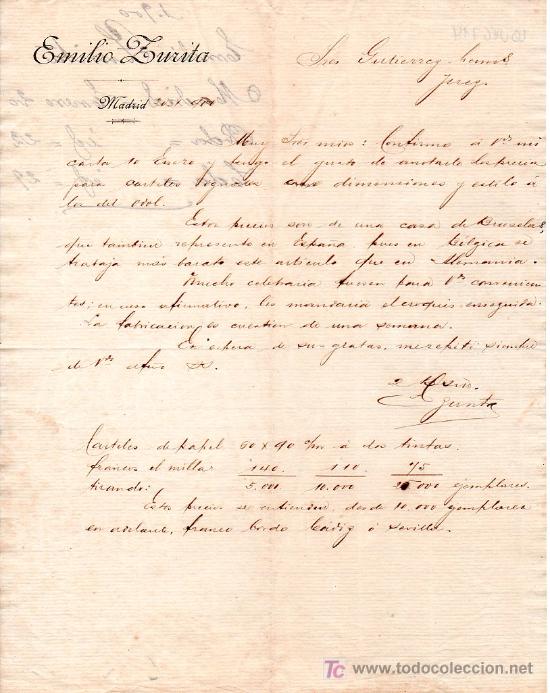 Emilio Zurita
Sres Gutierrez herms
Jerez
Madrid
Muy Sres mios: Confirmo á Vds mi
carta 10 Enero y tengo el gusto de anotarle los precios
para carteles dimensiones y estilo á
los del Odol.
Estos precios son de una casa de Bruselas,
que tambien represento en España, pues en Bélgica se
trabaja más barato este articulo que en Alemania.
Mucho celebraria fuesen para Vds convenien
tes; en caso afirmativo, les mandaria el croquis enseguida.
La fabricacion es cuestion de una semana.
En espera de sus gratas, me repito siempre
de Vds
Zurita
Carteles de papel 60 x 90 c/m á dos tintas.
francos el millar 140. 110 75
tirando: 5.000 10.000 25.000 ejemplares.
Estos precios se entienden, desde 10.000 ejemplares
en adelante, franco bordo Cadiz ó Sevilla.
TC todocoleccion.net
www.todocoleccion.net